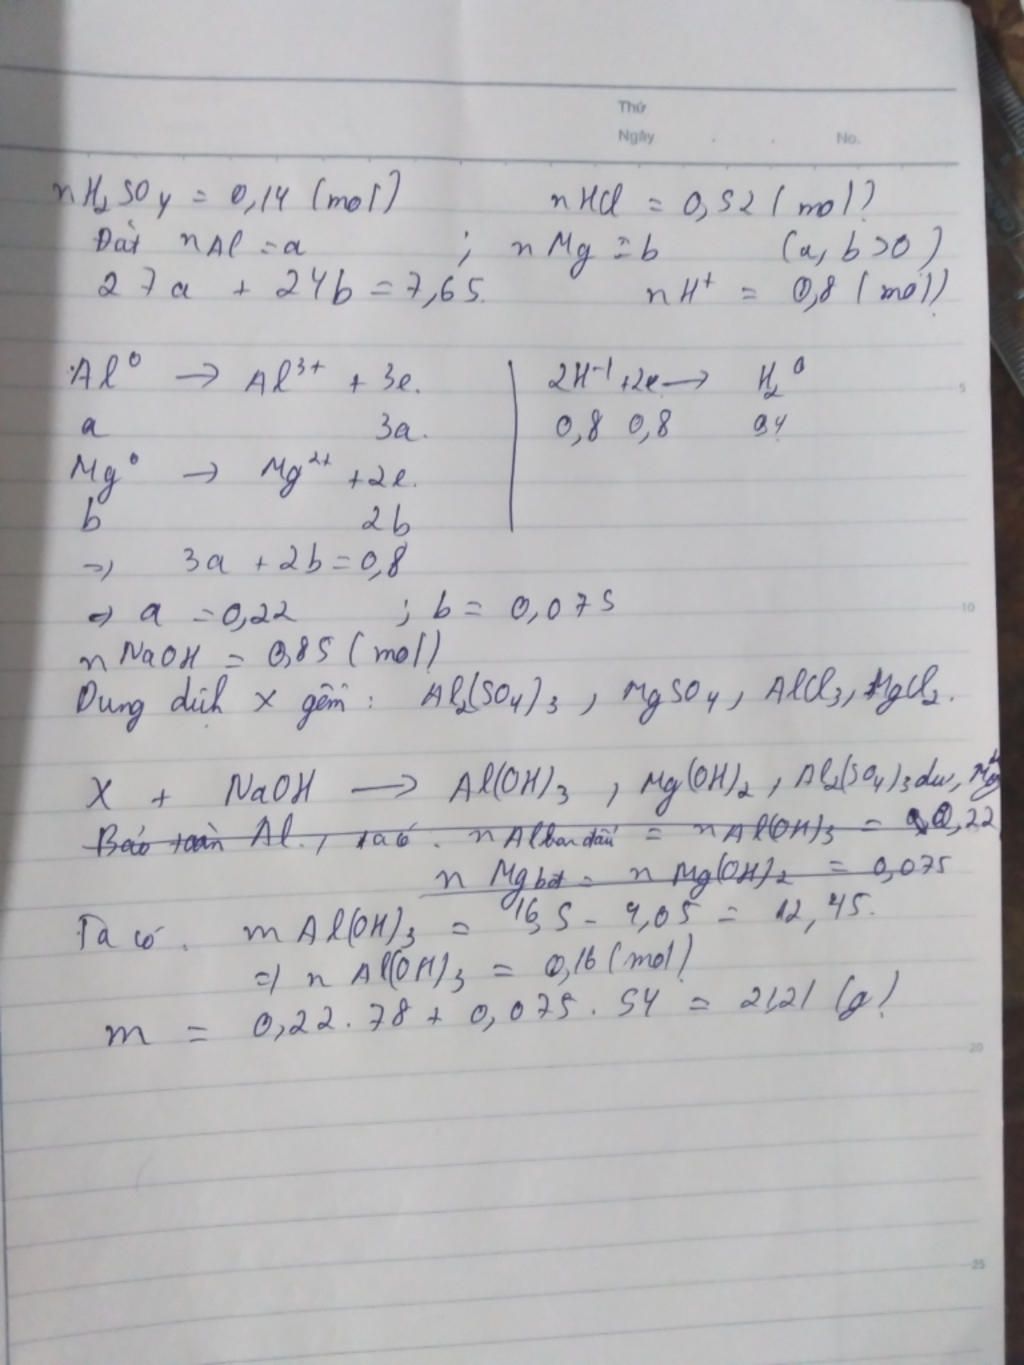 Thứ
Ngày . . No.
nH₂SO₄ = 0,14 (mol) nHCl = 0,52 (mol)
Đặt nAl = a ; nMg = b (a, b >0)
27a + 24b = 7,65. nH⁺ = 0,8 (mol)
Al⁰ → Al³⁺ + 3e. 2H⁻¹ +2e → H₂⁰
5
a 3a. 0,8 0,8 0,4
Mg⁰ → Mg²⁺ +2e.
b 2b
=> 3a + 2b = 0,8
=> a = 0,22 ; b = 0,075
10
nNaOH = 0,85 (mol)
Dung dịch X gồm : Al₂(SO₄)₃ , MgSO₄, AlCl₃, MgCl₂.
X + NaOH → Al(OH)₃ , Mg(OH)₂ , Al₂(SO₄)₃ dư,
Bảo toàn Al., ta có. nAl ban đầu = nAl(OH)₃ = 0,22
n Mg bđ = n Mg(OH)₂ = 0,075
Ta có. mAl(OH)₃ = 16,5 - 4,05 = 12,45.
=> n Al(OH)₃ = 0,16 (mol)
m = 0,22.78 + 0,075.54 = 21,21 (g)
20
25